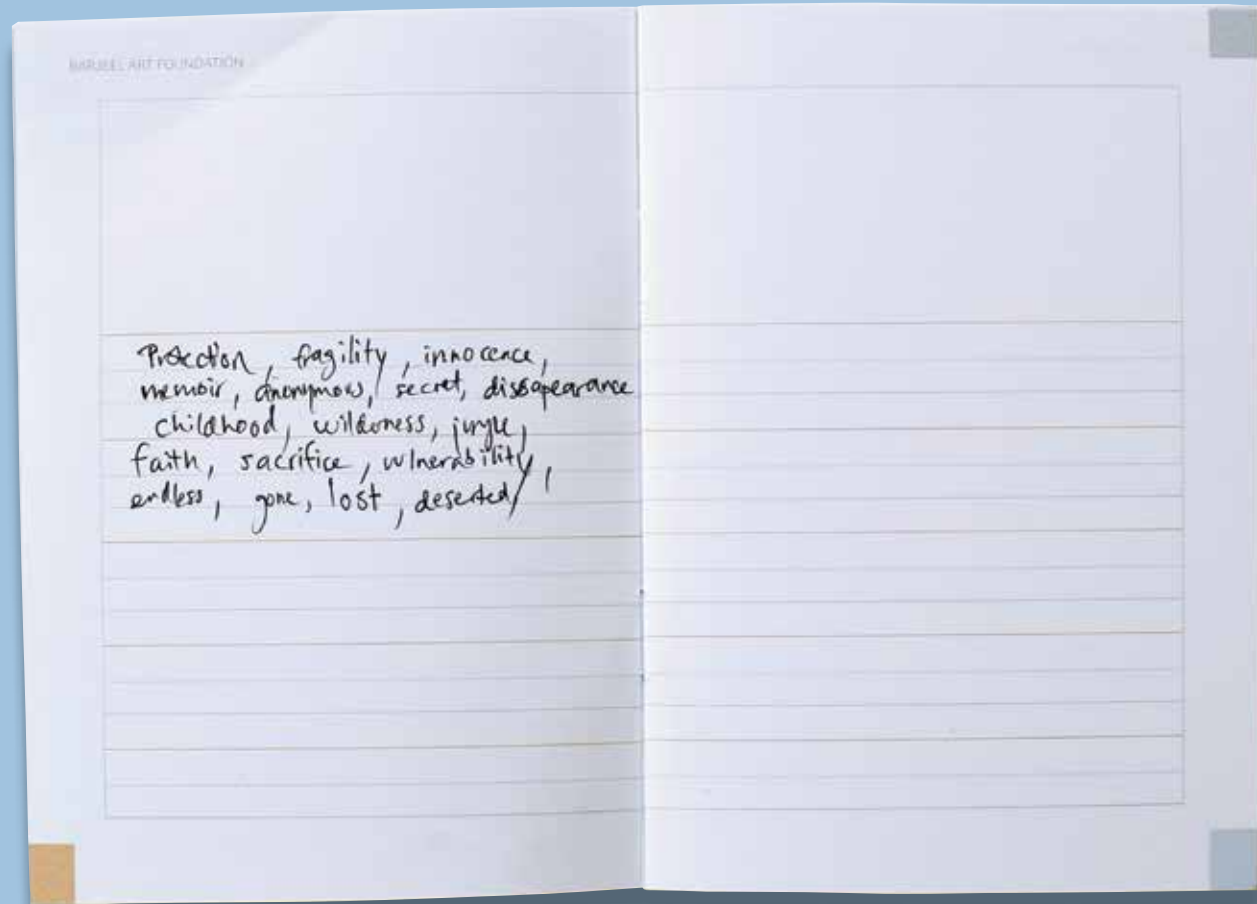 BARJEEL ART FOUNDATION
Protection, fragility, innocence,
memoir, anonymous, secret, dissapearance
childhood, wilderness, jungle,
faith, sacrifice, vulnerability,
endless, gone, lost, deserted,